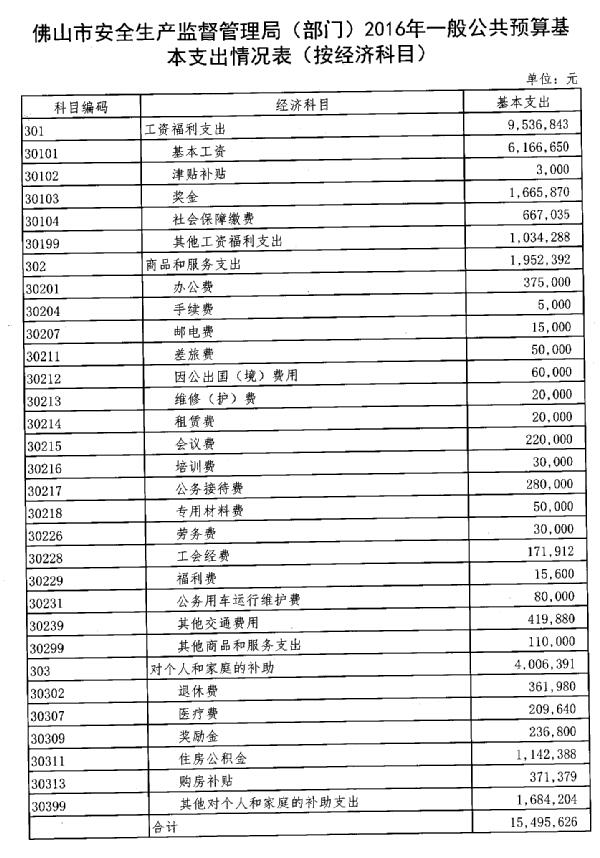 佛山市安全生产监督管理局（部门）2016年一般公共预算基
本支出情况表（按经济科目）
单位：元
科目编码 经济科目 基本支出
301 工资福利支出 9,536,843
30101 基本工资 6,166,650
30102 津贴补贴 3,000
30103 奖金 1,665,870
30104 社会保障缴费 667,035
30199 其他工资福利支出 1,034,288
302 商品和服务支出 1,952,392
30201 办公费 375,000
30204 手续费 5,000
30207 邮电费 15,000
30211 差旅费 50,000
30212 因公出国（境）费用 60,000
30213 维修（护）费 20,000
30214 租赁费 20,000
30215 会议费 220,000
30216 培训费 30,000
30217 公务接待费 280,000
30218 专用材料费 50,000
30226 劳务费 30,000
30228 工会经费 171,912
30229 福利费 15,600
30231 公务用车运行维护费 80,000
30239 其他交通费用 419,880
30299 其他商品和服务支出 110,000
303 对个人和家庭的补助 4,006,391
30302 退休费 361,980
30307 医疗费 209,640
30309 奖励金 236,800
30311 住房公积金 1,142,388
30313 购房补贴 371,379
30399 其他对个人和家庭的补助支出 1,684,204
合计 15,495,626